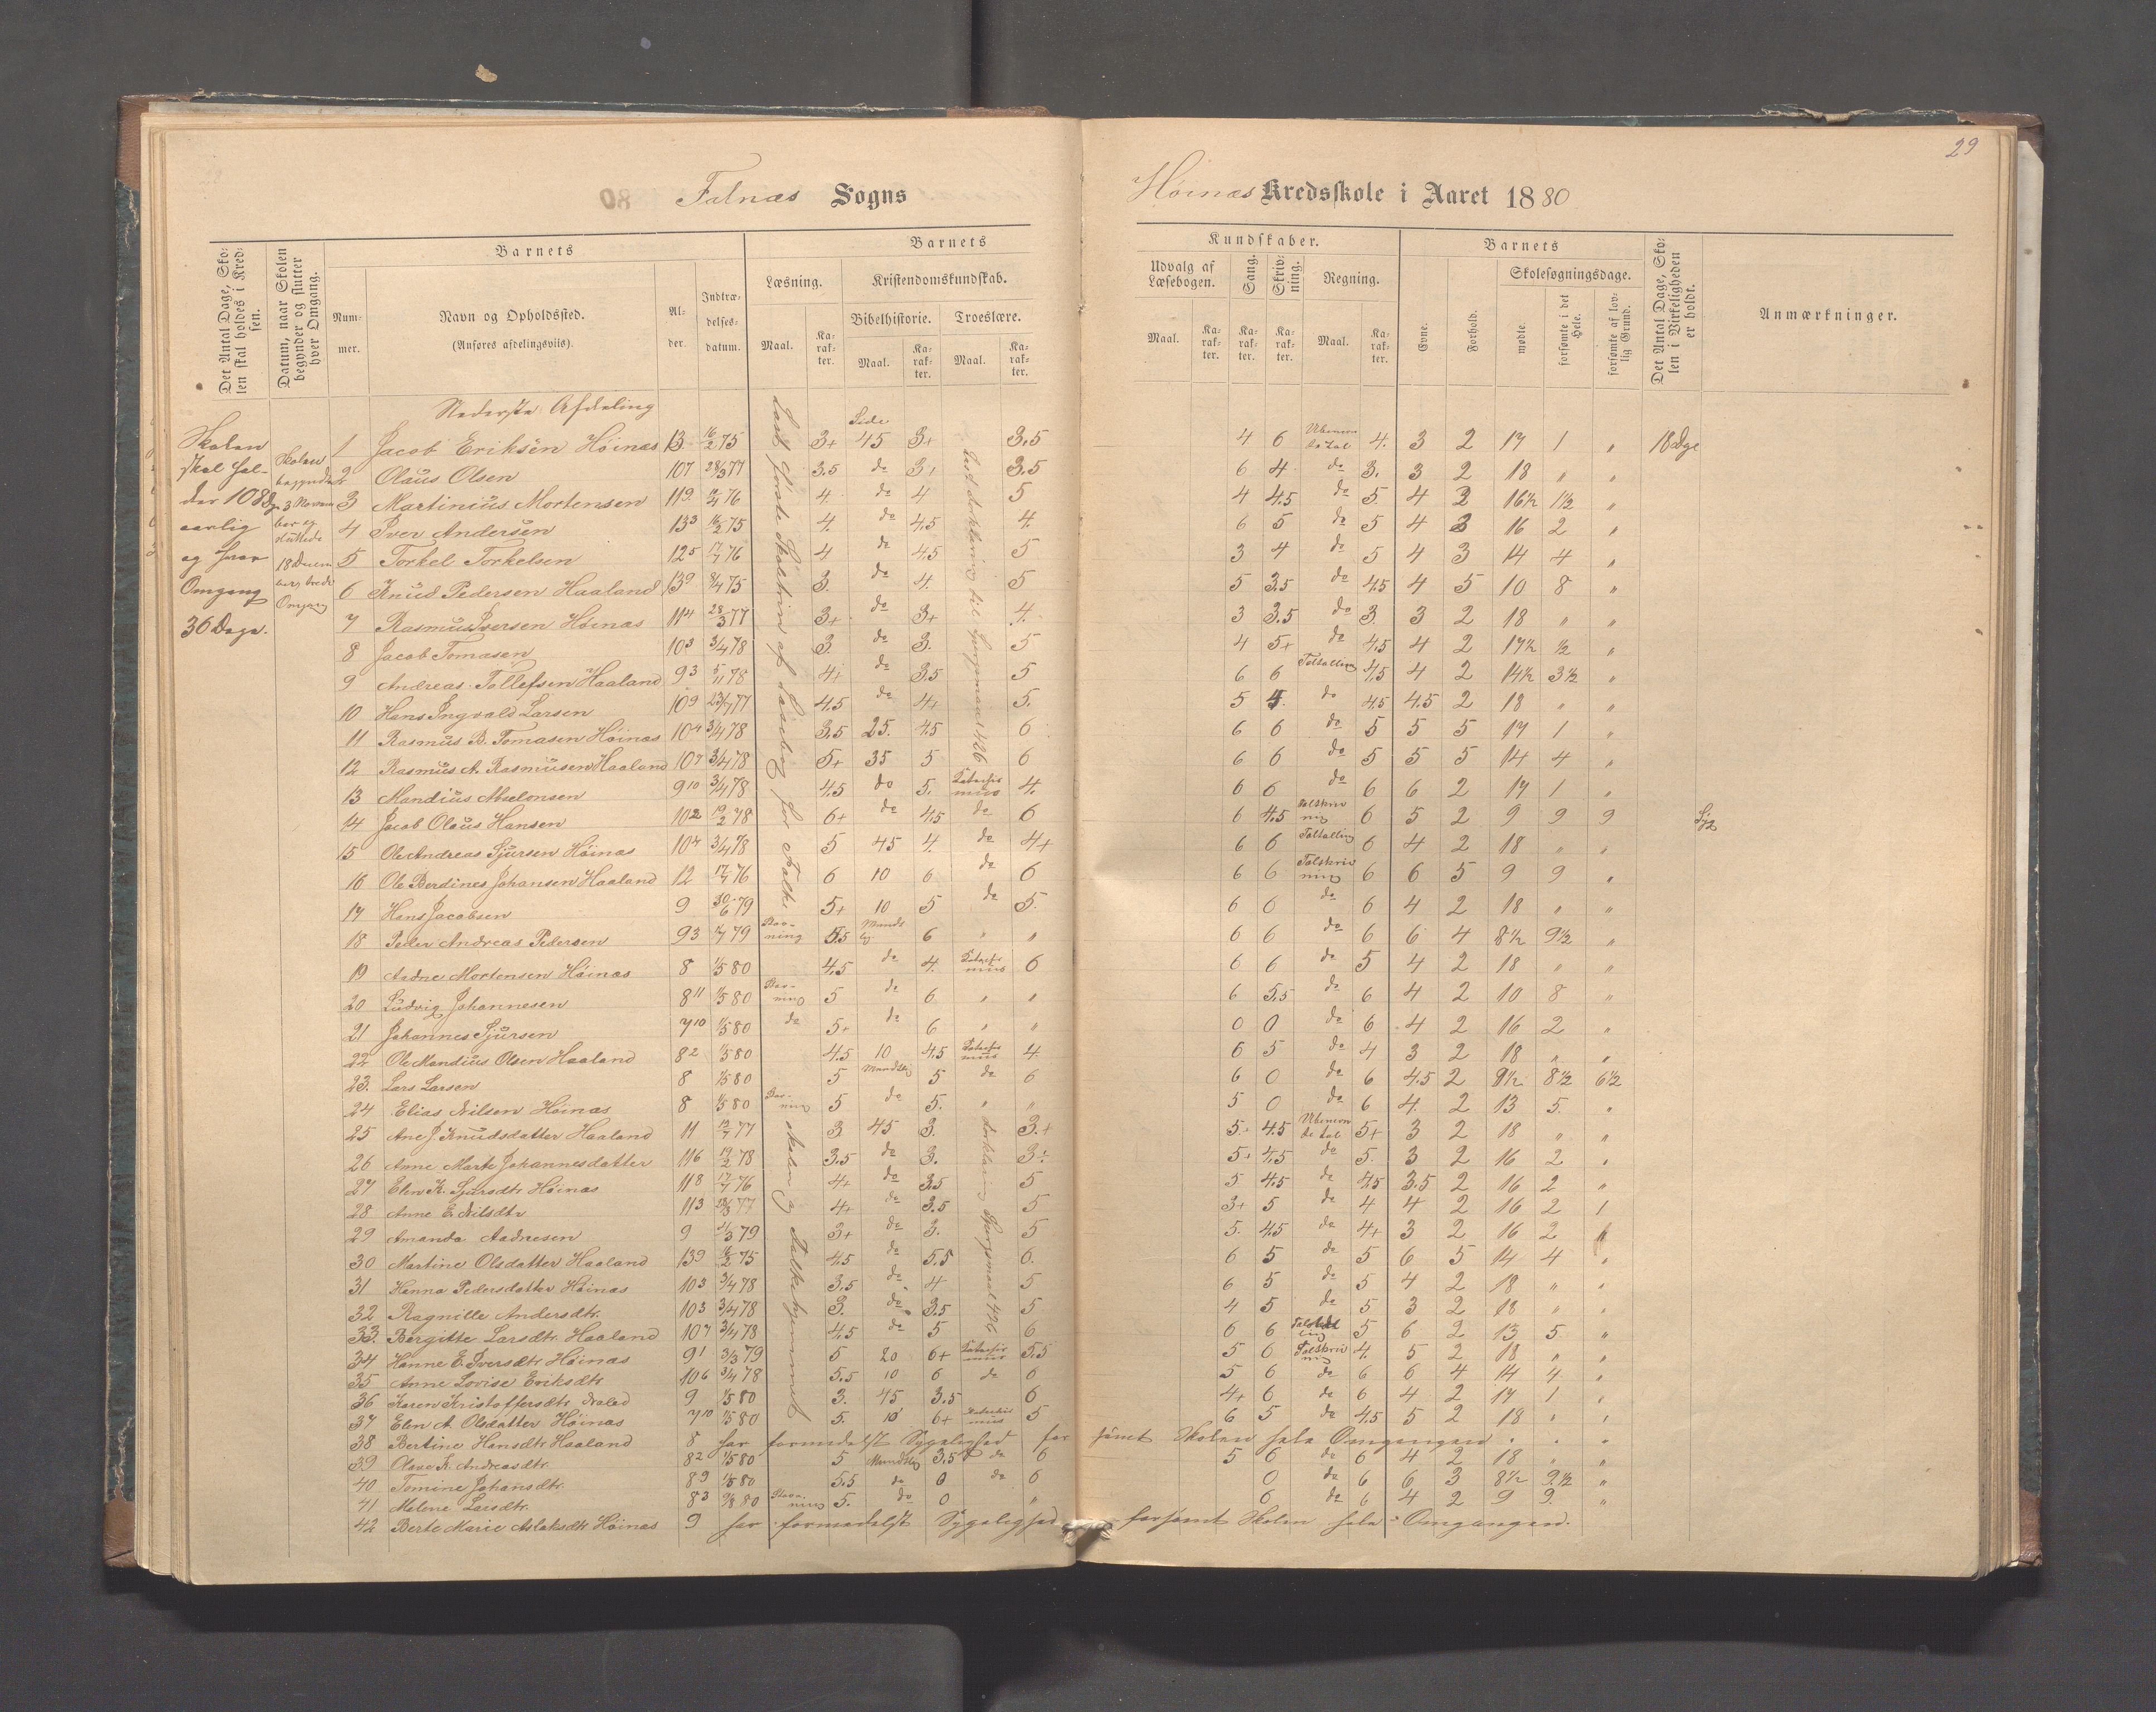 29
Falnæs Sogns
Høinæs Kredsskole i Aaret 1880
Det Antal Dage, Skolen skal holdes i Kredsen.
Datum, naar Skolen begynder og slutter hver Omgang.
Barnets
Nummer.
Navn og Opholdssted.
(Anføres afdelingsviis).
Alder.
Indtrædelsesdatum.
Barnets
Læsning.
Kristendomskundskab.
Bibelhistorie. Troeslære.
Maal. Karakter. Maal. Karakter. Maal. Karakter.
Kundskaber.
Udvalg af Læsebogen.
Sang. Skrivning. Regning.
Maal. Karakter. Karakter. Karakter. Maal. Karakter.
Barnets
Evne. Forhold.
Skolesøgningsdage.
mødte. forsømte i det Hele. forsømte af lovlig Grund.
Det Antal Dage, Skolen i Virkeligheden er holdt.
Anmærkninger.
Skolen skal hol- der 108 Dg aarlig og hver Omgang 36 Dage.
Skolen begyndte 3 Novem ber og sluttede 18 Decem ber, tredie Omgang
Nederste Afdeling
1 Jacob Eriksen Høinæs 13 16/2 75 3+ Side 45 3+ 3.5 4 6 Ubenævn de Tal 4. 3 2 17 1 " 18 Dge
2 Olaus Olsen 10 7 28/3 77 3.5 do 3+ 3.5 6 4 do 3. 3 2 18 " "
3 Martinius Mortensen 11 9 4 do 4 5 4 4.5 do 5 4 2 16½ 1½ "
4 Iver Andersen 13 3 16/2 75 4. do 4.5 4. 6 5 do 5 4 3 16 2 "
5 Torkel Torkelsen 12 5 17/7 76 4 do 4.5 5 3 4 do 5 4 3 14 4 "
6 Knud Pedersen Haaland 13 9 3. do 4. 5 5 3.5 do 4.5 4 5 10 8 "
7 Rasmus Iversen Høinæs 11 4 28/3 77 3+ do 3+ 4. 3 3.5 do 3. 3 2 18 " "
8 Jacob Tomasen 10 3 3/4 78 3. do 3. 5 4 5+ do 4.5 4 2 17½ ½ "
9 Andreas Tollefsen Haaland 9 3 5/11 78 4+ do 3.5 5 6 6 Teltalling 4.5 4 2 14½ 3½ "
10 Hans Ingvald Larsen 10 9 23/7 77 4.5 do 4+ 5. 5 4. do 4.5 4.5 2 18 " "
11 Rasmus B. Tomasen Høinæs 3/4 78 3.5 25. 4.5 6 6 6 do 5 5 5 17 1 "
12 Rasmus A. Rasmusen Haaland 10 7 3/4 78 5+ 35 5 6 6 6 do 5 5 5 14 4 "
13 Mandius Abselonsen 9 10 3/4 78 4.5 do 5. Katechis mus 4. 6 6 do 6 6 2 17 1 "
14 Jacob Olaus Hansen 10 2 19/2 78 6+ do 4.5 do 6 6 4.5 Talskriv ning 6 5 2 9 9 9 Syg
15 Ole Andreas Sjursen Høinæs 10 4 3/4 78 5 45 4. do 4+ 6 6 Teltalling 6 4 2 18 " "
16 Ole Berdines Johansen Haaland 12 17/7 76 6 10 6 do 6 6 6 Talskriv ning 6 6 5 9 9 "
17 Hans Jacobsen 9 30/6 79 5+ 10 5 do 5. 6 6 do 6 4 2 18 " "
18 Peder Andreas Pedersen 9 3 79 Stav- ning 5.5 Mundt lig. 6 " " 6 6 do 6 6 4 8½ 9½ "
19 Aadne Mortensen Høinæs 8 1/5 80 4.5 do 4. Katechis mus 6 6 6 do 5 4 2 18 " "
20 Ludvig Johannesen 8 11 1/5 80 Stav- ning 5 do 6 " " 6 5.5 do 6 4 2 10 8 "
21 Johannes Sjursen 7 10 1/5 80 do 5+ do 6 " " 0 0 do 6 4 2 16 2 "
22 Ole Mandius Olsen Haaland 8 2 1/5 80 4.5 10 4.5 Katechis mus 4. 6 5 do 4 3 2 18 " "
23. Lars Larsen 8 1/5 80 5 Mundtlig 5 do 6 6 0 do 6 4.5 2 9½ 8½ 6½
24 Elias Nilsen Høinæs 8 1/5 80 Stav- ning 5 do 5. " " 5 0 do 6 4. 2 13 5. "
25 Ane J. Knudsdatter Haaland 11 77 3 45 3. 3.+ 5. 4.5 Ubenævn de tal 5+ 3 2 18 " "
26 Anne Marte Johannesdatter 11 6 19/2 78 3.5 do 3. 5+ 4.5 do 5. 3 2 16 2 "
27 Elen K. Sjursdtr Høinæs 11 8 17/7 76 4+ do 3.5 5 5 4.5 do 4.5 3.5 2 16 2 "
28 Anne E. Nilsdtr 11 3 77 4+ do 3.5 5 3+ 5 do 4 4 2 16 2 1
29 Amanda Aadnesen 9 79 3+ do 3. 5 5. 4.5 do 4+ 3 2 16 2 "
30 Martine Olsdatter Haaland 13 9 16/2 75 4.5 do 5.5 6. 6 5 do 5 6 5 14 4 "
31 Hanna Pedersdatter Høinæs 10 3 3/4 78 3.5 do 4 5 6 5 do 5 4 2 18 " "
32 Ragnille Andersdtr. 10 3 3/4 78 3. do 3.5 5 4 5 do 5 3 2 18 " "
33. Bergitte Larsdtr. Haaland 10 7 3/4 78 4.5 do 5 6 6 6 5 6 2 13 5. "
34 Hanne E. Iversdtr. Høinæs 9 1 3/3 79 5 20 6+ Katechis mus 5.5 5 6 Talskriv ning 4. 5 2 18 " "
35 Anne Lovise Eriksdtr 10 6 3/4 78 5.5 10 6 do 6 5 6 do 6 6 4 14 4 "
36 Karen Kristoffersdtr 9 1/5 80 3. 45 3.5 6 4+ 6 do 6 4 2 17 1 "
37 Elen A. Olsdatter Høinæs 7 10 1/5 80 5. 10 6+ Katechis mus 5 6 5 do 4.5 5 2 18 " "
38 Bertine Hansdtr. Haaland 8 har formedelst Sygelighed for sømt Skolen hele Omgangen
39 Andreasdtr. 8 2 1/5 80 5 Mundtlig 3.5 do 6 5 6 do 6 4 2 18 " "
40 Tomine Johansdtr. 8 9 1/5 80 5.5 do 6 do 6 0 do 6 6 3 8½ 9½ "
41 Malene Larsdtr. 8 3 80 Stav- ning 5. do 0 " 6 do 6 4 2 9 9. "
42 Berte Marie Aslaksdtr Høinæs 9 har formedelst Sygelighed forsømt Skolen hele Omgangen.
Læst første Skoletrin af Læsebog for Folke
skolen og Folkehjemmet
Læst Forklaring til Spørgsmaal 426
Forklaring Spørgsmaal 426